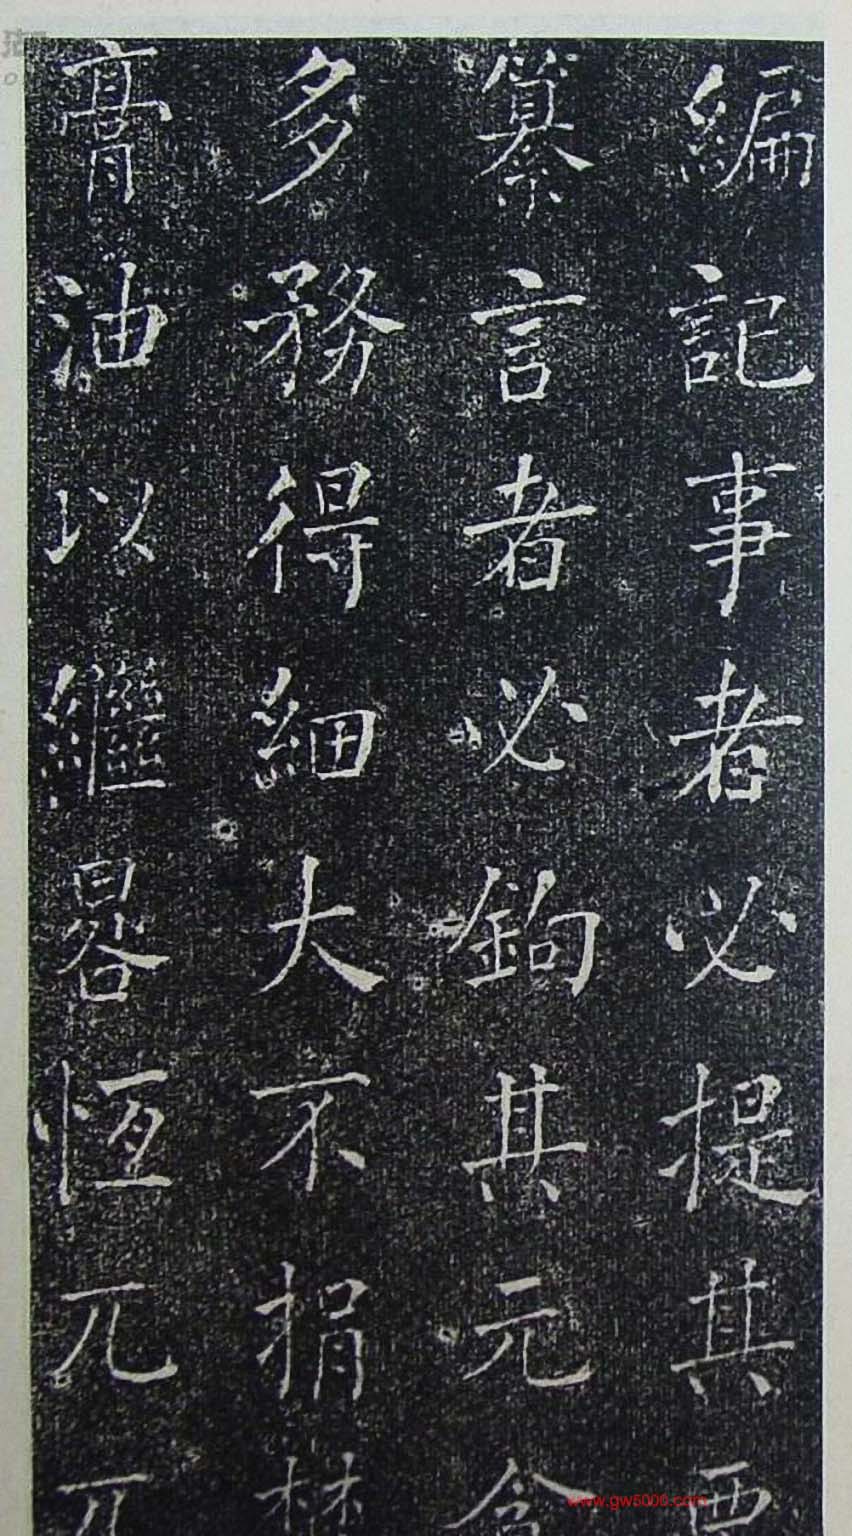 編記事者必提其要
纂言者必鉤其元貪
多務得細大不捐焚
膏油以繼晷恆兀兀
www.gw5006.com